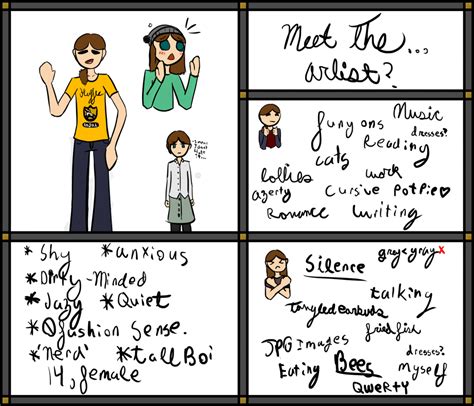 Meet The...
artist?
Huffle
Music
funyons
dresses?
Reading
cats
lollies
work
azerty
Cursive
PotPie♡
Romance
Writing
*Shy
*anxious
*Dirty-Minded
*Jazy
*Quiet
*0 fashion Sense.
*'Nerd'
*tall Boi
14, female
greyxgray x
Silence
talking
tangled earbuds
fried fish
JPG Images
dresses?
Eating
Bees
myself
QWERTY